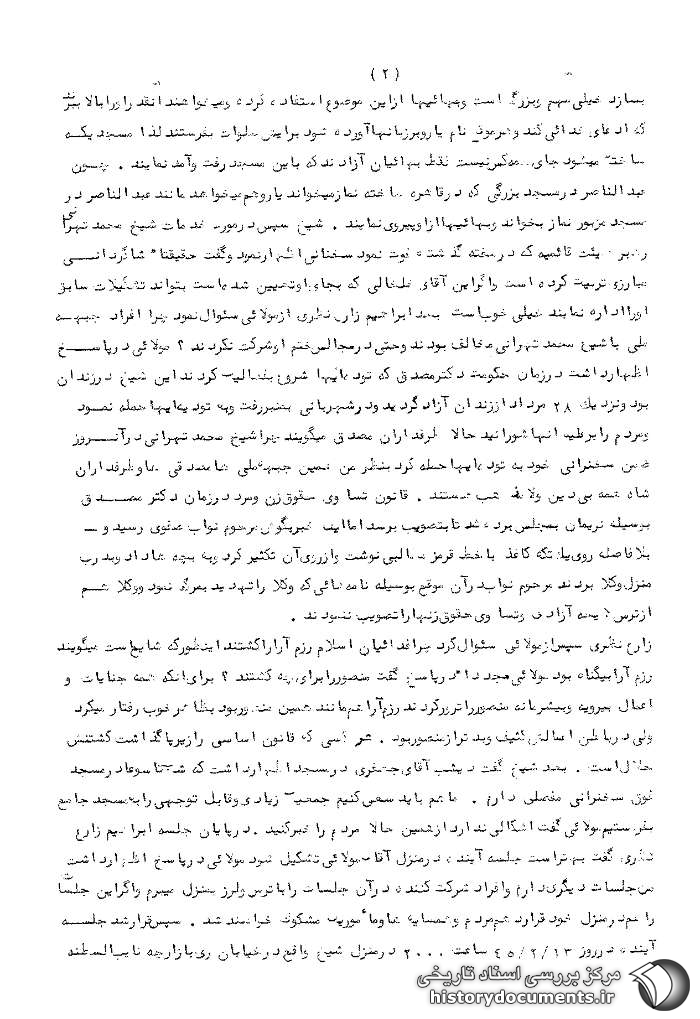 (۲)
بسازد خیلی مهم وبزرگ است وبهائیها ازاین موضوع استفاده کرده ومیخواهند آنقدر اورا بالا ببرند
که ادعای خدائی کند وهرموقع نام یاروبرزبانها آورده شود برایش صلوات بفرستند لذا مسجدیکه
ساخته میشود جای نیست فقط بهائیان آزادند که باین مسجد رفت وآمد نمایند . چون
عبدالناصر درمسجد بزرگی که درقاهره ساخته نمازمیخواند یاروهم میخواهد مانند عبدالناصر در
مسجد مزبور نماز بخواند وبهائیها ازاوپیروی نمایند . شیخ سپس درمورد خدمات شیخ محمد تهرانی
رهبر هیئت قائمیه که درهفته گذشته فوت نمود سخنانی اظهارنمود وگفت حقیقتا" شاگردانی
مبارزی تربیت کرده است واگراین آقای خلخالی که بجای اوتعیین شده است بتواند تشکیلات سابق
اورااداره نماید خیلی خوب است بعد ابراهیم زارع نظری ازمولائی سئوال نمود چرا افراد جبهه
ملی باشیخ محمد تهرانی مخالف بودند وحتی درمجالس ختم اوشرکت نکردند ؟ مولائی درپاسخ
اظهارداشت درزمان حکومت دکترمصدق که توده ایها شروع بفعالیت کردند این شیخ درزندان
بود ونزدیک ۲۸ مرداد اززندان آزاد گردید ودرشهربانی بمنبررفت وبه توده ایها حمله نمود
ومردم را برعلیه آنها شورانید حالا طرفداران مصدق میگویند چرا شیخ محمد تهرانی درآنروز
ضمن سخنرانی خود به توده ایها حمله کرد بنظر من همین جبهه ملی ها مصدقی ها وطرفداران
شاه همه بی دین ولا مذهب هستند . قانون تساوی حقوق زن ومرد درزمان دکتر مصدق
بوسیله نریمان بمجلس برده شد تابتصویب برسد اما این خبربگوش مرحوم نواب صفوی رسید و -
بلافاصله روی یک تکه کاغذ باخط قرمز مطالبی نوشت وازروی آن تکثیر کرد وبه بچه ها داد وبدرب
منزل وکلا بردند مرحوم نواب درآن موقع بوسیله نامه هائی که وکلا راتهدید بمرگ نمود ووکلا هم
ازترس لایحه آزادی وتساوی حقوق زنها راتصویب ننمودند .
زارع نظری سپس ازمولائی سئوال کرد چرا فدائیان اسلام رزم آرا راکشتند اینطورکه شایع است میگویند
رزم آرا بیگناه بود مولائی مجددا" درپاسخ گفت منصوررا برای چه کشتند ؟ برای اینکه همه جنایات و
اعمال بیرویه وبیشرمانه منصوررا ترورکردند رزم آرا هم مانند همین منصوربود بظاهر خوب رفتار میکرد
ولی درباطن اعمالش کثیف وبدتر ازمنصوربود . هر کسی که قانون اساسی را زیرپا گذاشت کشتنش
حلال است . بعد شیخ گفت دیشب آقای جعفری درمسجد اظهارداشت که شب تاسوعا درمسجد
فوق سخنرانی مفصلی دارم . ماهم باید سعی کنیم جمعیت زیادی وقابل توجهی را به مسجد جامع
بفرستیم مولائی گفت اشکالی ندارد ازهمین حالا مردم را خبرکنید . درپایان جلسه ابراهیم زارع
نظری گفت بهتراست جلسه آینده درمنزل آقای مولائی تشکیل شود مولائی درپاسخ اظهارداشت
من جلسات دیگری دارم وافراد شرکت کننده درآن جلسات را با ترس ولرز بمنزل میبرم واگراین جلسات
را هم درمنزل خود قراردهم مردم وهمسایه ها ومأموریت مشکوک خواهند شد . سپس قرارشد جلسه
آینده درروز ۴۵/۲/۱۳ ساعت ۲۰۰۰ درمنزل شیخ واقع درخیابان ری بازارچه نایب السلطنه
مرکز بررسی اسناد تاریخی
historydocuments.ir